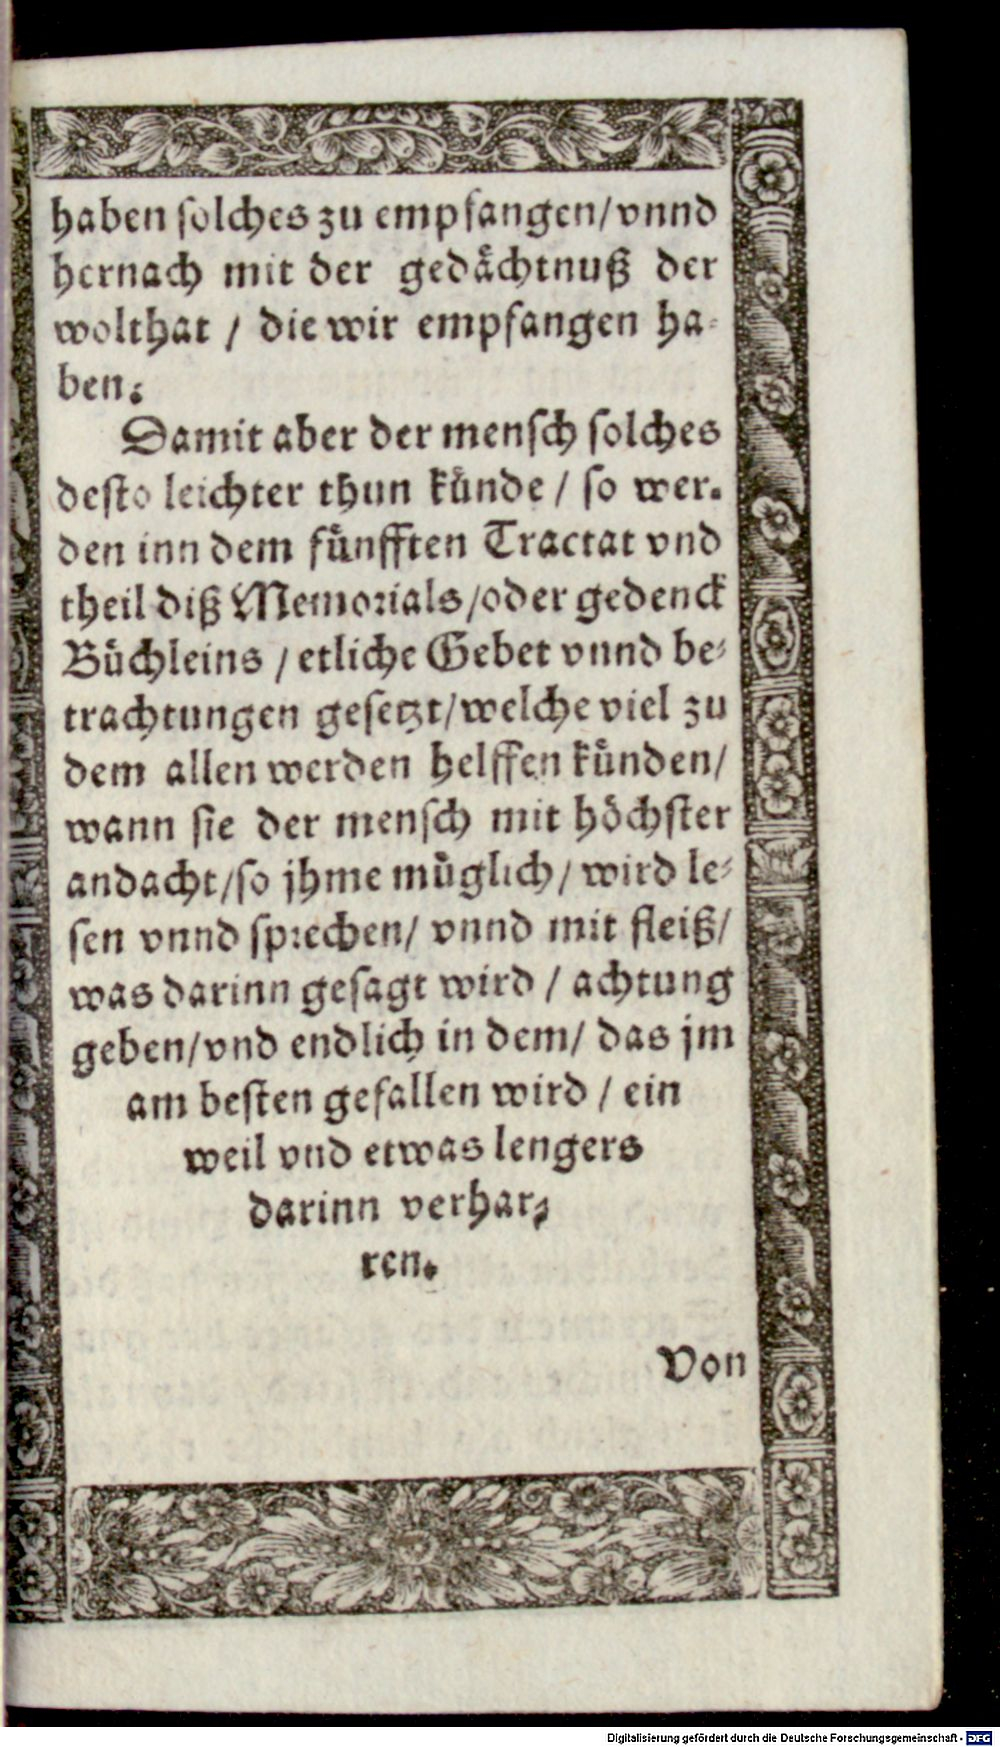 haben solches zu empfangen/ vnnd
hernach mit der gedächtnuß der
wolthat / die wir empfangen ha-
ben.
Damit aber der mensch solches
desto leichter thun künde / so wer-
den inn dem fünfften Tractat vnd
theil diß Memorials/oder gedenck
Büchleins / etliche Gebet vnnd be-
trachtungen gesetzt/welche viel zu
dem allen werden helffen künden/
wann sie der mensch mit höchster
andacht/so jhme müglich/ wird le-
sen vnnd sprechen/ vnnd mit fleiß/
was darinn gesagt wird / achtung
geben/vnd endlich in dem/ das jm
am besten gefallen wird / ein
weil vnd etwas lengers
darinn verhar-
ren.
Von
Digitalisierung gefördert durch die Deutsche Forschungsgemeinschaft - DFG